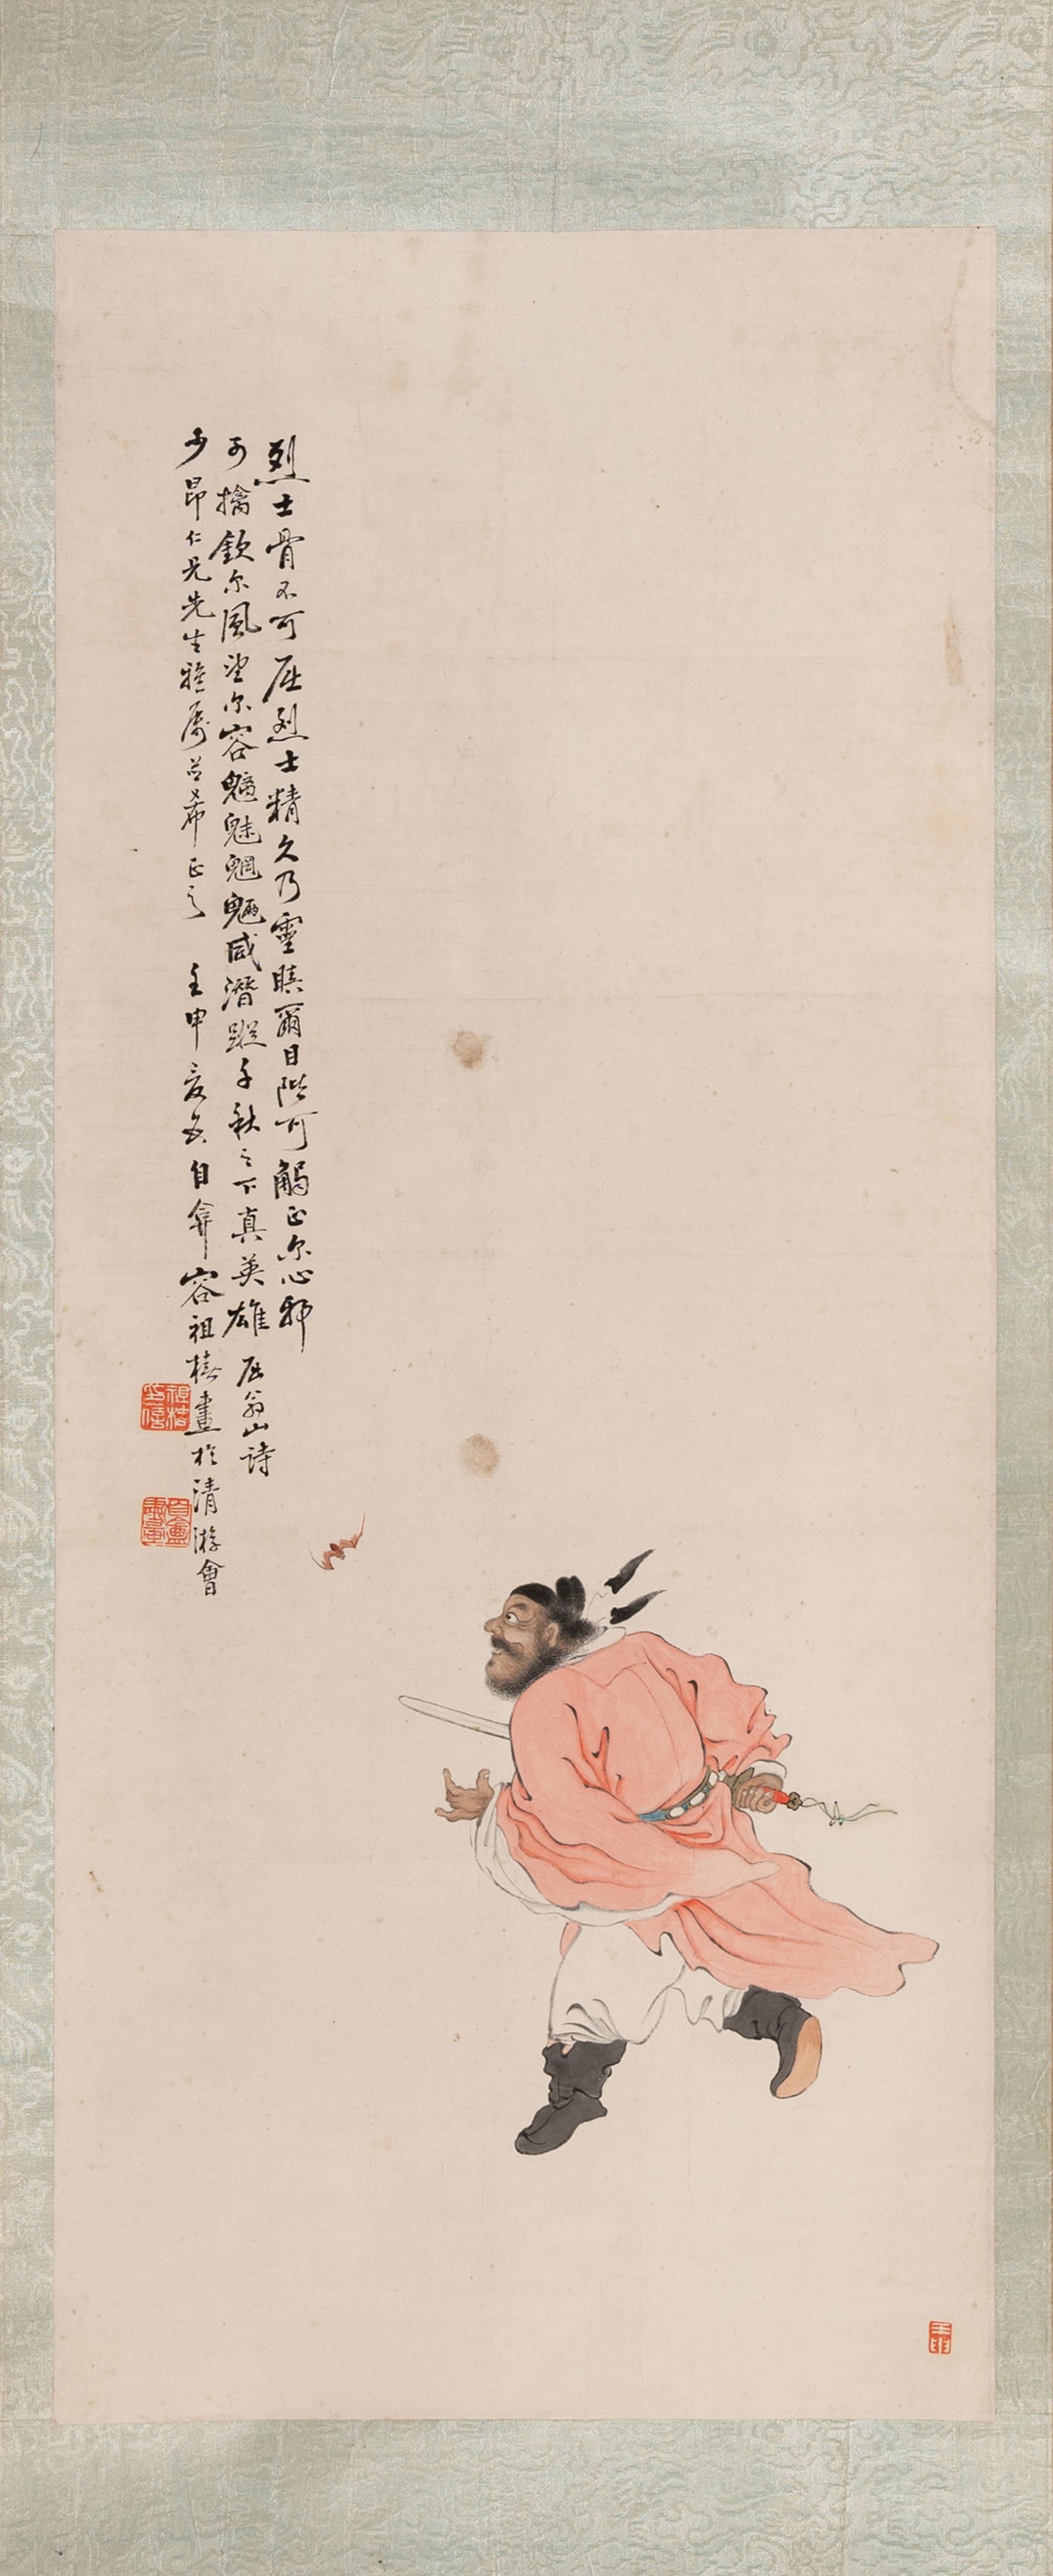 烈士骨不可屈烈士精久乃靈瞋爾目陛可觸正尔心邪
可擒欽尔風望尔容魑魅魍魎咸潛蹤千秋之下真英雄 屈翁山詩
少昂仁兄先生雅属並希正之 壬申 自弇容祖椿畫於清游會
祖椿
壬申